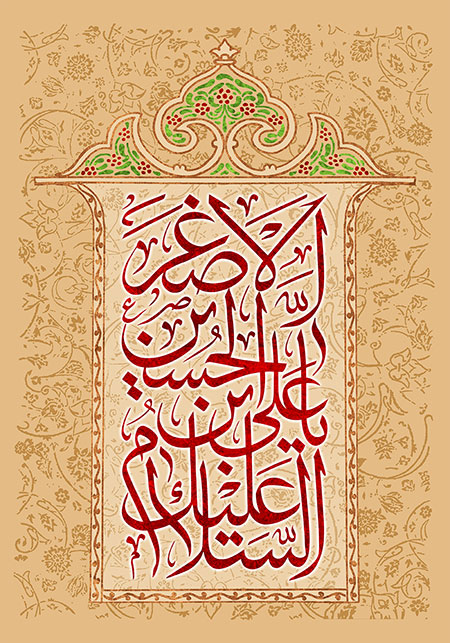 السلام عليك
يا على ابن
الحسين
الاصغر